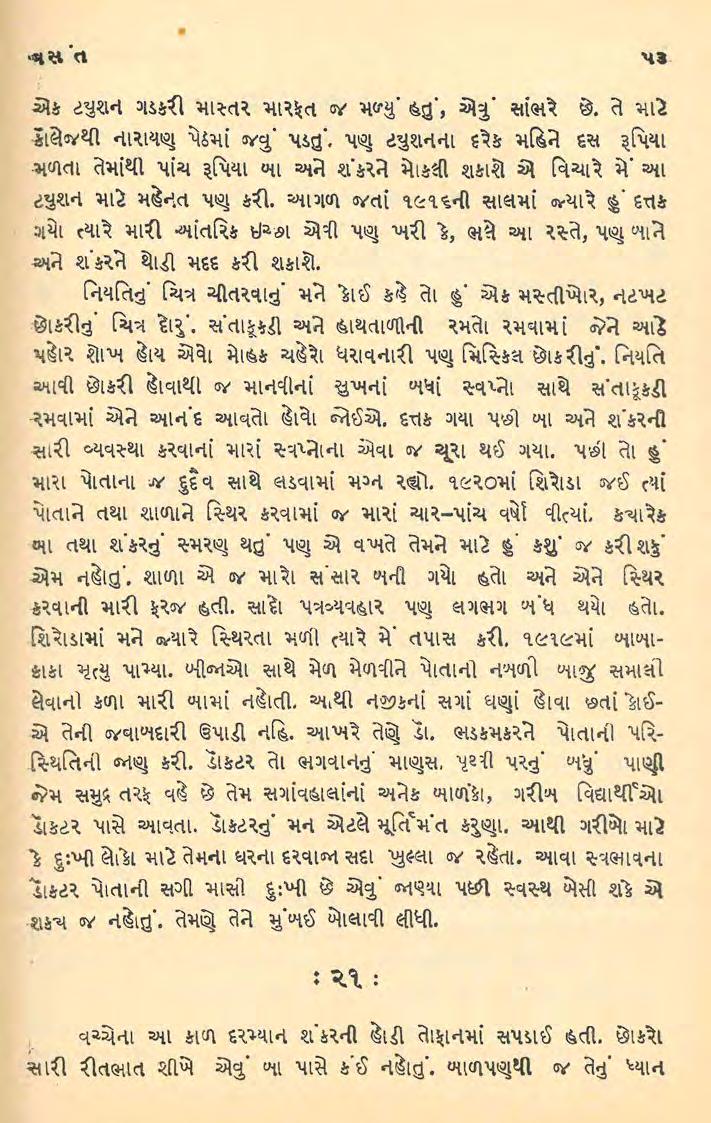 વસંત ૫૩
એક ટ્યુશન ગડકરી માસ્તર મારફત જ મળ્યું હતું, એવું સાંભરે છે. તે માટે
કૉલેજથી નારાયણ પેઠમાં જવું પડતું. પણ ટ્યુશનના દરેક મહિને દસ રૂપિયા
મળતા તેમાંથી પાંચ રૂપિયા બા અને શંકરને મોકલી શકાશે એ વિચારે મેં આ
ટ્યુશન માટે મહેનત પણ કરી. આગળ જતાં ૧૯૧૬ની સાલમાં જ્યારે હું દત્તક
ગયો ત્યારે મારી આંતરિક ઇચ્છા એવી પણ ખરી કે, ભલે આ રસ્તે, પણ બાને
અને શંકરને થોડી મદદ કરી શકાશે.
નિયતિનું ચિત્ર ચીતરવાનું મને કોઈ કહે તો હું એક મસ્તીખોર, નટખટ
છોકરીનું ચિત્ર દોરું. સંતાકૂકડી અને હાથતાળીની રમતો રમવામાં જેને આઠે
પહોર શોખ હોય એવો મોહક ચહેરો ધરાવનારી પણ મિસ્કિલ છોકરીનું. નિયતિ
આવી છોકરી હોવાથી જ માનવીનાં સુખનાં બધાં સ્વપ્નો સાથે સંતાકૂકડી
રમવામાં એને આનંદ આવતો હોવો જોઈએ. દત્તક ગયા પછી બા અને શંકરની
સારી વ્યવસ્થા કરવાનાં મારાં સ્વપ્નોના એવા જ ચૂરા થઈ ગયા. પછી તો હું
મારા પોતાના જ દુર્દૈવ સાથે લડવામાં મગ્ન રહ્યો. ૧૯૨૦માં શિરોડા જઈ ત્યાં
પોતાને તથા શાળાને સ્થિર કરવામાં જ મારાં ચાર–પાંચ વર્ષો વીત્યાં. ક્યારેક
બા તથા શંકરનું સ્મરણ થતું પણ એ વખતે તેમને માટે હું કશું જ કરી શકું
એમ નહોતું. શાળા એ જ મારો સંસાર બની ગયો હતો અને એને સ્થિર
કરવાની મારી ફરજ હતી. સાદો પત્રવ્યવહાર પણ લગભગ બંધ થયો હતો.
શિરોડામાં મને જ્યારે સ્થિરતા મળી ત્યારે મેં તપાસ કરી. ૧૯૧૯માં બાબા-
કાકા મૃત્યુ પામ્યા. બીજાઓ સાથે મેળ મેળવીને પોતાની નબળી બાજુ સમાલી
લેવાની કળા મારી બામાં નહોતી. આથી નજીકનાં સગાં ઘણાં હોવા છતાં કોઈ-
એ તેની જવાબદારી ઉપાડી નહિ. આખરે તેણે ડૉ. ભડકમકરને પોતાની પરિ-
સ્થિતિની જાણ કરી. ડૉક્ટર તો ભગવાનનું માણુસ. પૃથ્વી પરનું બધું પાણી
જેમ સમુદ્ર તરફ વહે છે તેમ સગાંવહાલાંનાં અનેક બાળકો, ગરીબ વિદ્યાર્થીઓ
ડૉક્ટર પાસે આવતા. ડૉક્ટરનું મન એટલે મૂર્તિમંત કરુણા. આથી ગરીબો માટે
કે દુઃખી લોકો માટે તેમના ઘરના દરવાજા સદા ખુલ્લા જ રહેતા. આવા સ્વભાવના
ડૉક્ટર પોતાની સગી માસી દુઃખી છે એવું જાણ્યા પછી સ્વસ્થ બેસી શકે એ
શક્ય જ નહોતું. તેમણે તેને મુંબઈ બોલાવી લીધી.
: ૨૧ :
વચ્ચેના આ કાળ દરમ્યાન શંકરની હોડી તોફાનમાં સપડાઈ હતી. છોકરો
સારી રીતભાત શીખે એવું બા પાસે કંઈ નહોતું. બાળપણથી જ તેનું ધ્યાન